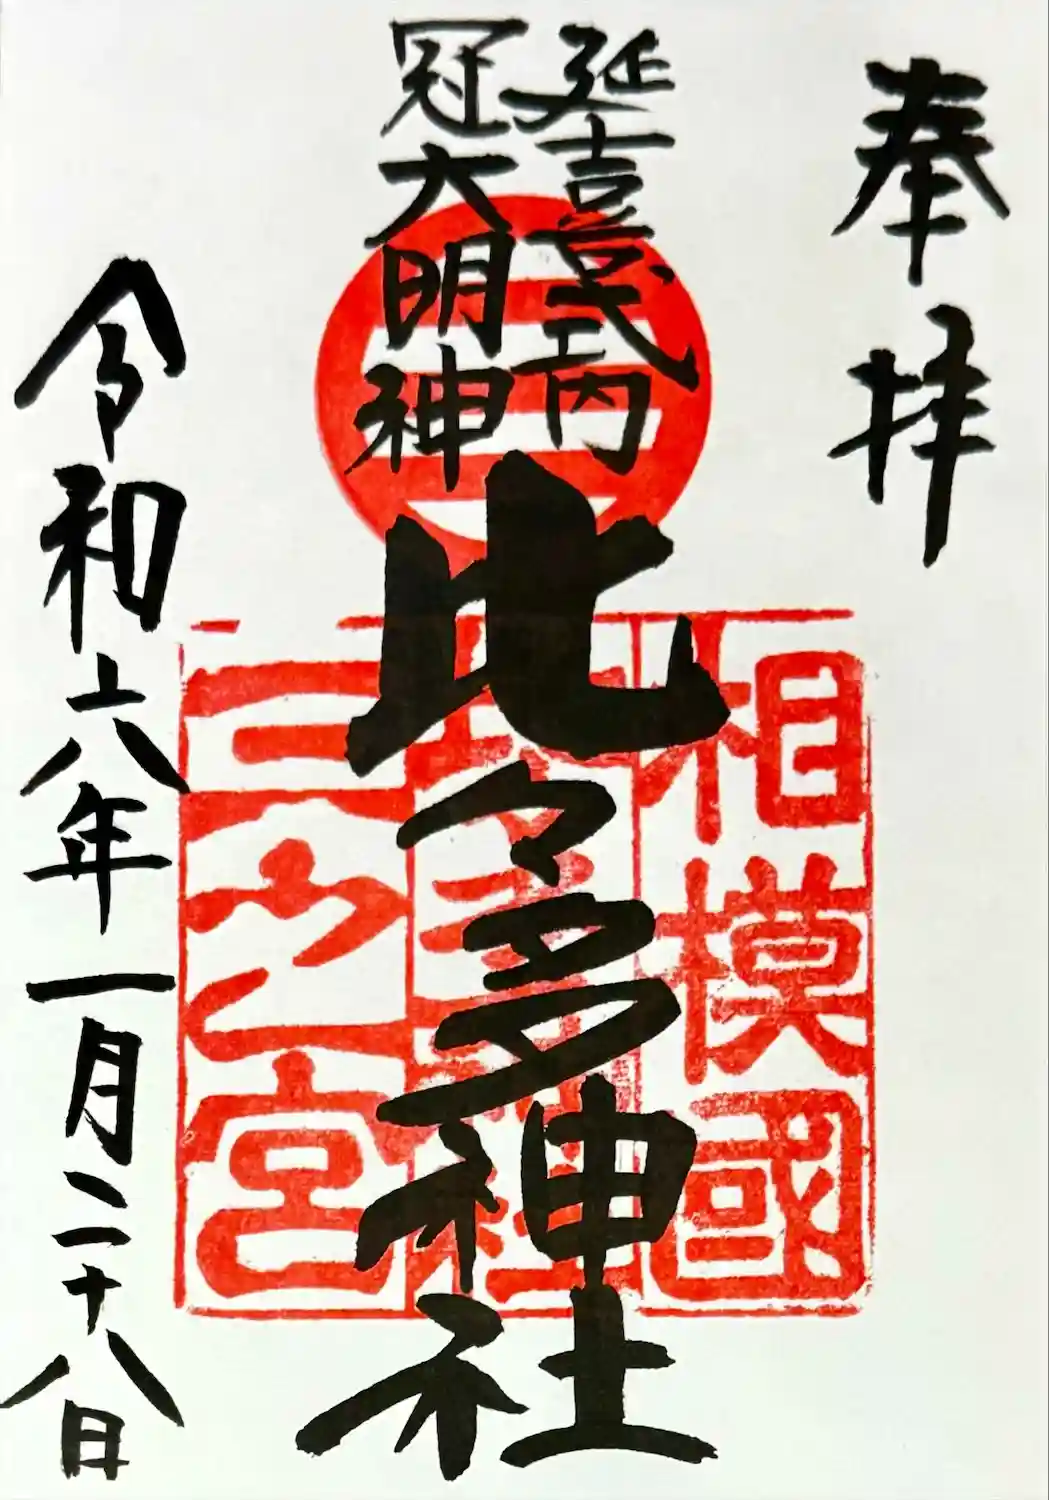 奉拝
延喜式内
冠大明神
比々多神社
相模國
三之宮
令和六年一月二十八日